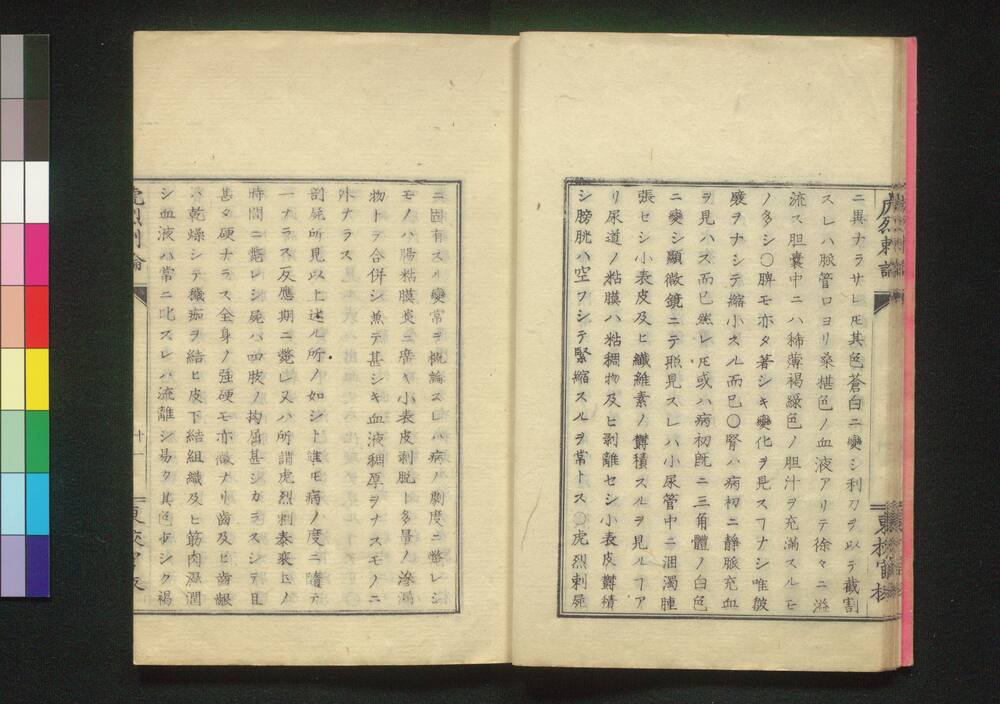 ニ異ナラサレ𪜈其色蒼白ニ變シ利刀ヲ以テ截割
スレハ脈管口ヨリ桑椹色ノ血液アリテ徐々ニ溢
流ス胆嚢中ニハ稀薄褐綠色ノ胆汁ヲ充滿スルモ
ノ多シ〇脾モ亦タ著シキ變化ヲ見スヿナシ唯皺
襞ヲナシテ縮小スル而已〇腎ハ病初ニ靜脈充血
ヲ見ハス而已然レ𪜈或ハ病初旣ニ三角體ノ白色
ニ變シ顯微鏡ニテ照見スレハ小尿管中ニ溷濁腫
張セシ小表皮及ヒ纖維素ノ欝積スルヲ見ルヿア
リ尿道ノ粘膜ハ粘稠物及ヒ剥離セシ小表皮欝積
シ膀胱ハ空フシテ緊縮スルヲ常トス〇虎烈剌屍
虎烈剌論
東校官板
ニ固有スル變常ヲ概論スレハ病ノ劇度ニ斃レシ
モノハ腸粘膜炎ニ席ヤ小表皮剥脱ト多量ノ滲漏
物トヲ合併シ兼テ甚シキ血液稠厚ヲナスモノニ
外ナラス
剖屍所見以上述ル所ノ如シト雖モ病ノ度ニ隨テ
一ナラス反應期ニ斃レ又ハ所謂虎烈剌泰裏𪜈ノ
時間ニ斃レシ屍ハ四肢ノ拘屈甚シカラスシテ且
甚タ硬ナラス全身ノ強硬モ亦微ナリ齒及ヒ齒齦
ハ乾燥シテ穢痂ヲ結ヒ皮下結組織及ヒ筋肉濕潤
シ血液ハ常ニ比スレハ流離シ易ク其色少シク褐
虎烈剌論
十一
東校官板